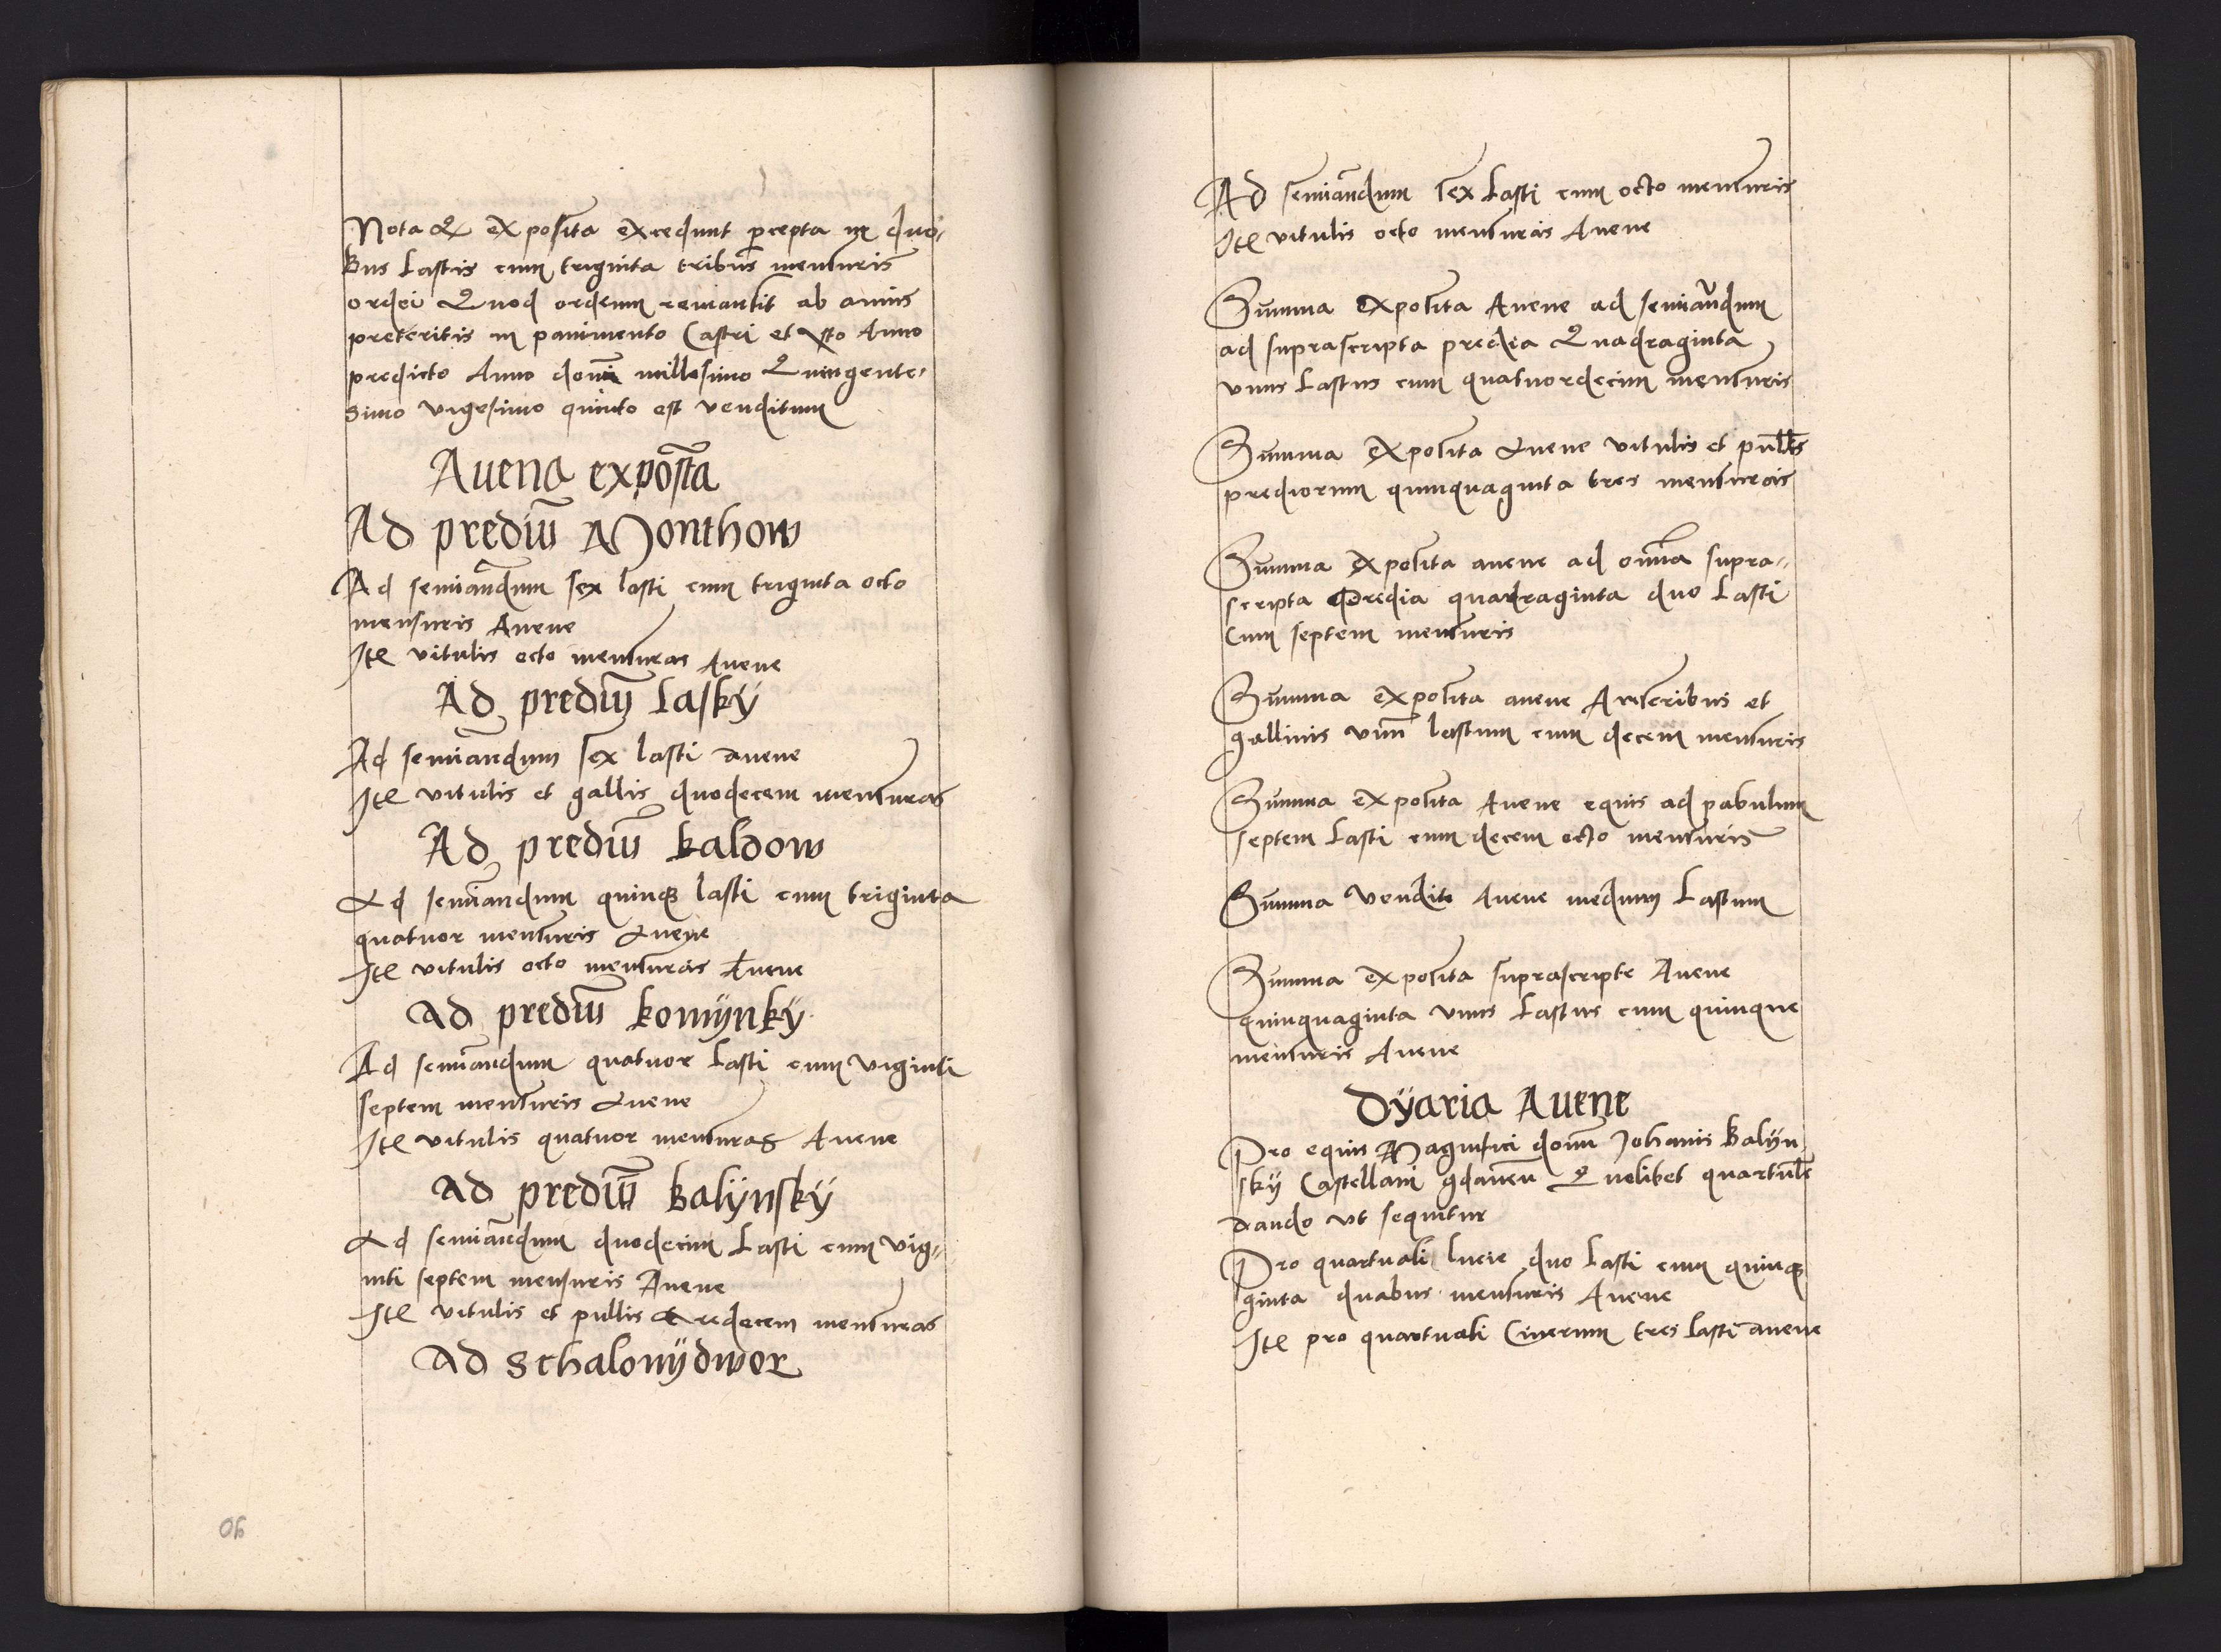 Nota q exposita excedunt pcepta in duo-
bus Lastis cum triginta tribus mensuris
ordei Quod ordeum remansit ab annis
preteritis in pavimento Castri et isto Anno
predicto Anno domi millesimo Quingente-
simo vigesimo quinto est venditum
Auena exposita
Ad prediu Monthow
Ad semiandum sex lasti cum triginta octo
mensuris Auene
Ite vitulis octo mensuras Auene
Ad prediu Laskÿ
Ad semiandum sex lasti auene
Ite vitulis et gallis duodecem mensuras
Ad prediu kaldow
Ad semiandum quinq lasti cum triginta
quatuor mensuris Auene
Ite vitulis octo mensuras Auene
Ad prediu komÿnkÿ
Ad semiandum quatuor Lasti cum viginti
septem mensuris Auene
Ite vitulis quatuor mensuras Auene
Ad prediu Balÿnskÿ
Ad semiandum duodecim Lasti cum vig-
inti septem mensuris Auene
Ite vitulis et pullis tredecem mensuras
Ad Schalonÿdwor
Ad semiandum sex Lasti cum octo mensuris
Ite vitulis octo mensuras Auene
Summa exposita Auene ad semiandum
ad suprascripta predia Quadraginta
vnus Lastus cum quatuordecim mensuris
Summa exposita Auene vitulis et pulls
prediorum quinquaginta tres mensuras
Summa exposita auene ad omia supra-
scripta predia quadraginta duo Lasti
Cum septem mensuris
Summa exposita auene Anseribus et
gallinis vnu lastum cum decem mensuris
Summa exposita Auene equis ad pabulum
septem Lasti cum decem octo mensuris
Summa vendite Auene medium Lastum
Summa exposita suprascripte Auene
quinquaginta vnus Lastus cum quinque
mensuris Auene
Dÿaria Auene
Pro equis Magnifici domi Johanis Balÿn
skÿ Castellani gdanen Quolibet quartuale
dando vt sequitur
Pro quartuali lucie duo Lasti cum quinqua
ginta duabus mensuris Auene
Ite pro quartuali Cinerum tres Lasti auene
90